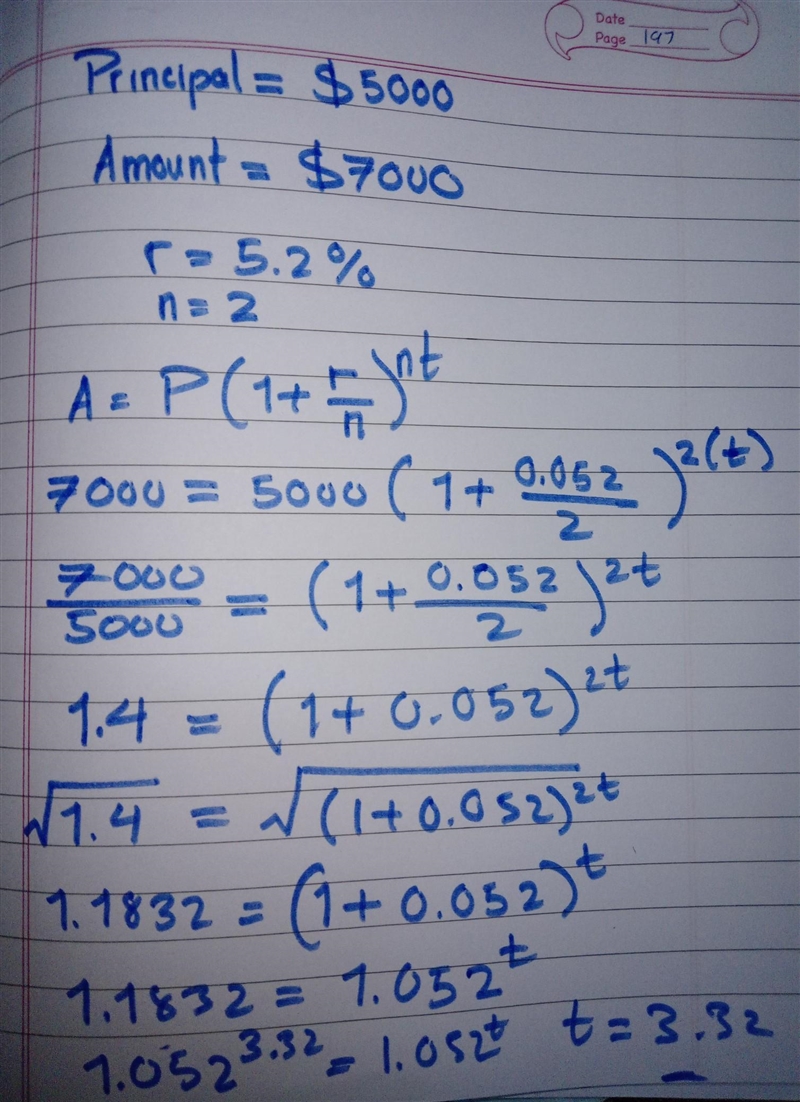 Date
Page 197
Principal = $5000
Amount = $7000
r = 5.2%
n = 2
A = P(1+r/n)^nt
7000 = 5000(1+0.052/2)^2(t)
7000/5000 = (1+0.052/2)^2t
1.4 = (1+0.052)^2t
√1.4 = √(1+0.052)^2t
1.1832 = (1+0.052)^t
1.1832 = 1.052^t
1.052^3.32 = 1.052^t t = 3.32